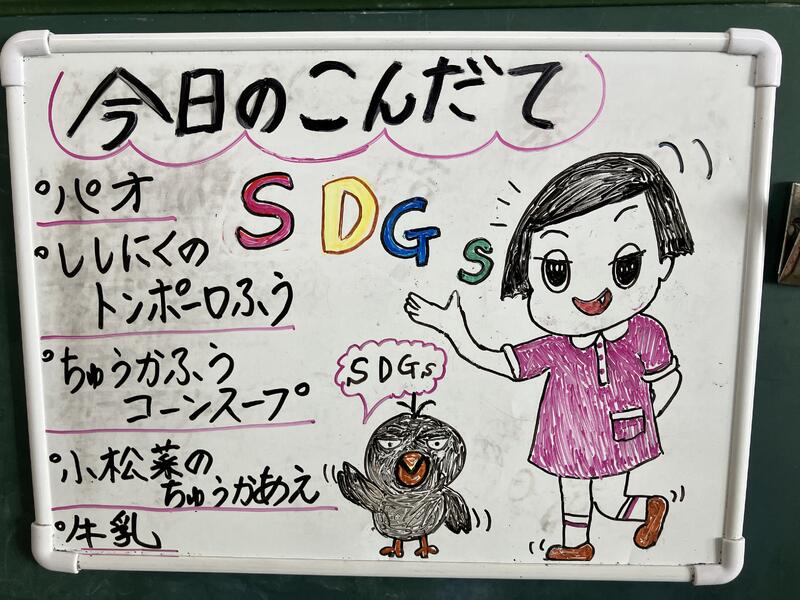 今日のこんだて
SDGs
パオ
ししにくの
トンポーロふう
ちゅうかふう
コーンスープ
小松菜の
ちゅうかあえ
牛乳
SDGs